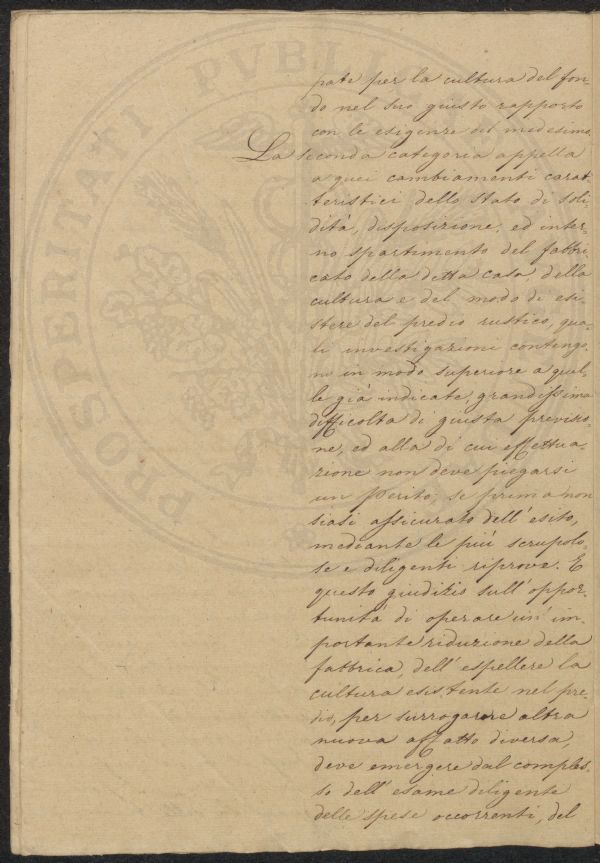 pate per la cultura del fon-
do nel suo giusto rapporto
con le esigenze del medesimo.
La seconda categoria appella
a quei cambiamenti carat-
teristici dello stato di soli-
dità, disposizione, ed inter-
no spartimento del fabbri-
cato della ditta casa, della
cultura e del modo di esi-
stere del predio rustico, qua-
li investigazioni contengo-
no in modo superiore a quel-
le già indicate, grandissima
difficoltà di giusta previsio-
ne, ed alla di cui effettua-
zione non deve piegarsi
un Perito, se prima non
siasi assicurato dell'esito,
mediante le più scrupolo-
se e diligenti riprove. E
questo giudizio sull'oppor-
tunità di operare un'im-
portante riduzione della
fabbrica, dell'espellere la
cultura esistente nel pre-
dio, per surrogarne altra
nuova affatto diversa,
deve emergere dal comples-
so dell'esame diligente
delle spese occorrenti, del
PROSPERITATI PVBLIC